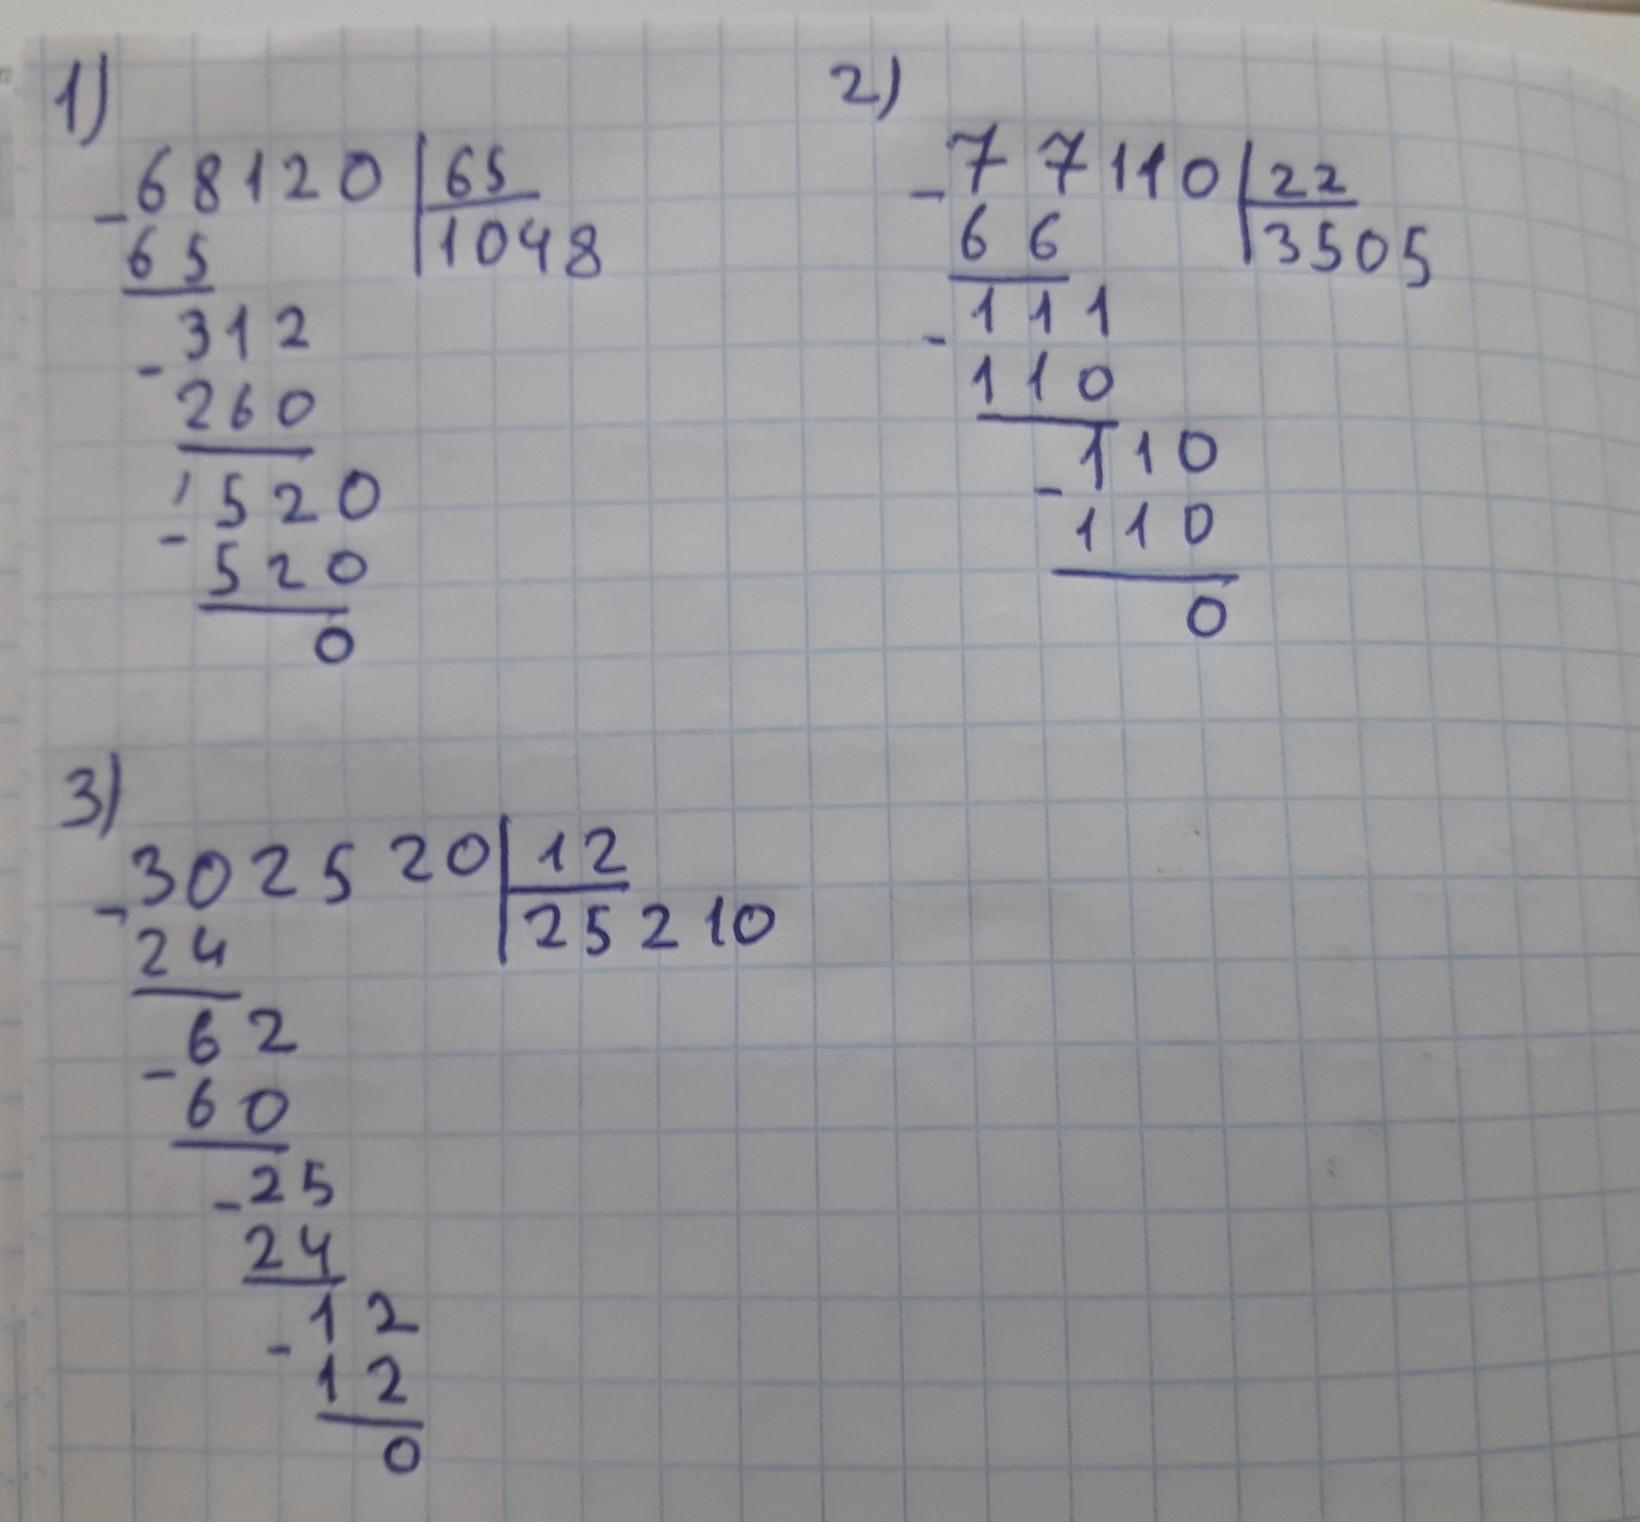 1)
68120 65
- 65 1048
312
- 260
520
- 520
0
2)
77110 22
- 66 3505
111
- 110
110
- 110
0
3)
302520 12
- 24 25210
62
- 60
- 25
24
12
- 12
0